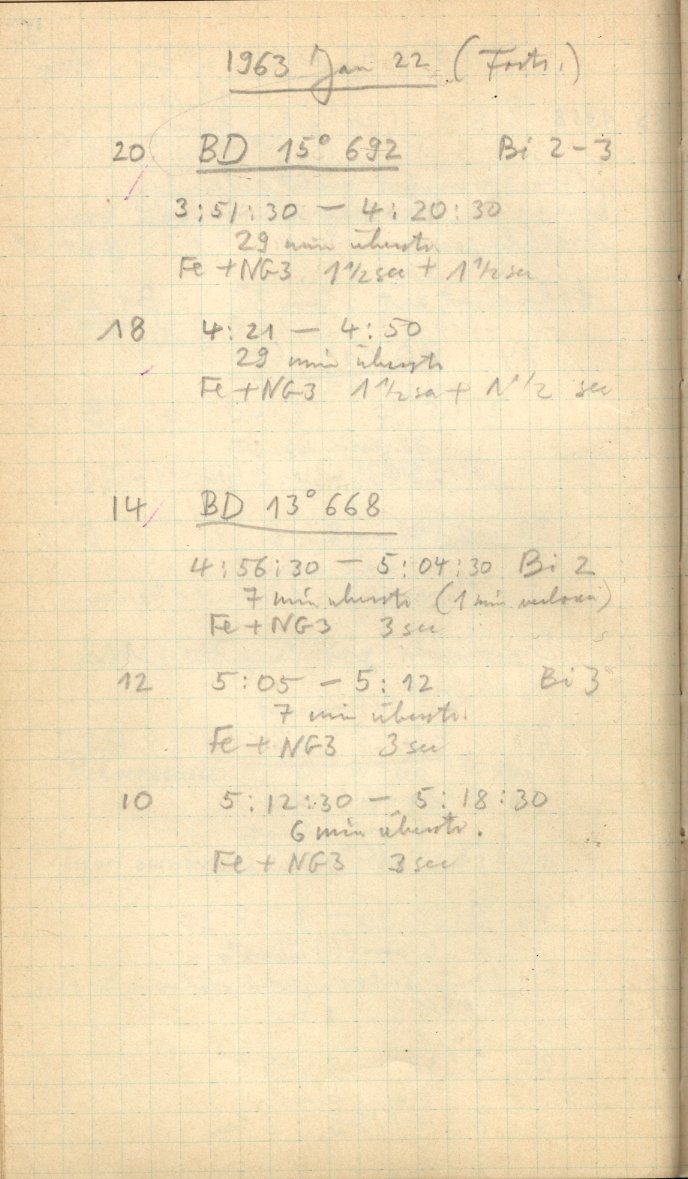 1963 Jan 22 (Forts.)
20 BD 15° 692 Bi 2-3
3:51:30 — 4:20:30
29 min überstr.
Fe + NG3 1 1/2 sec + 1 1/2 sec
18 4:21 — 4:50
29 min überstr.
Fe + NG3 1 1/2 sec + 1 1/2 sec
14 BD 13° 668
4:56:30 — 5:04:30 Bi 2
7 min überstr. (1 min verloren)
Fe + NG3 3 sec
12 5:05 — 5:12 Bi 3
7 min überstr.
Fe + NG3 3 sec
10 5:12:30 — 5:18:30
6 min überstr.
Fe + NG3 3 sec